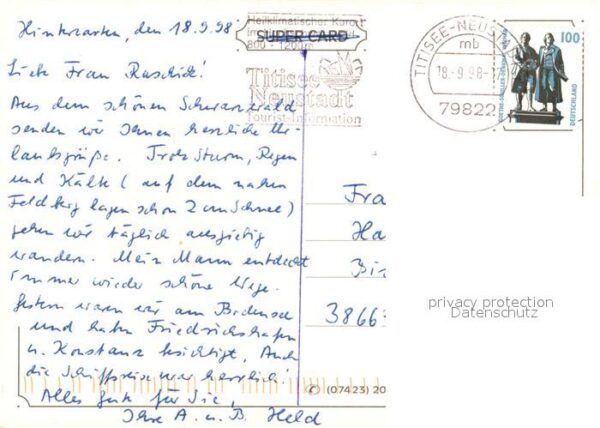 Hinterzarten, den 18.9.98
Liebe Frau Raschick!
Aus dem schönen Schwarzwald
senden wir Ihnen herzliche Ur-
laubsgrüße. Trotz Sturm, Regen
und Kälte (auf dem nahen
Feldberg lagen schon 2 cm Schnee)
gehen wir täglich ausgiebig
wandern. Mein Mann entdeckt
immer wieder schöne Wege.
Gestern waren wir am Bodensee
und haben Friedrichshafen
u. Konstanz besichtigt. Auch
die Schiffsreise war herrlich!
Alles Gute für Sie,
Ihre A. u. B. Held
Heilklimatischer Kurort
SUPER CARD
800 - 1200m
Titisee
Neustadt
Tourist-Information
TITISEE-NEUS
mb
18.-9.98-
79822
100
DEUTSCHLAND
Fra
Ha
Bi
3866
privacy protection
Datenschutz
(07423) 20